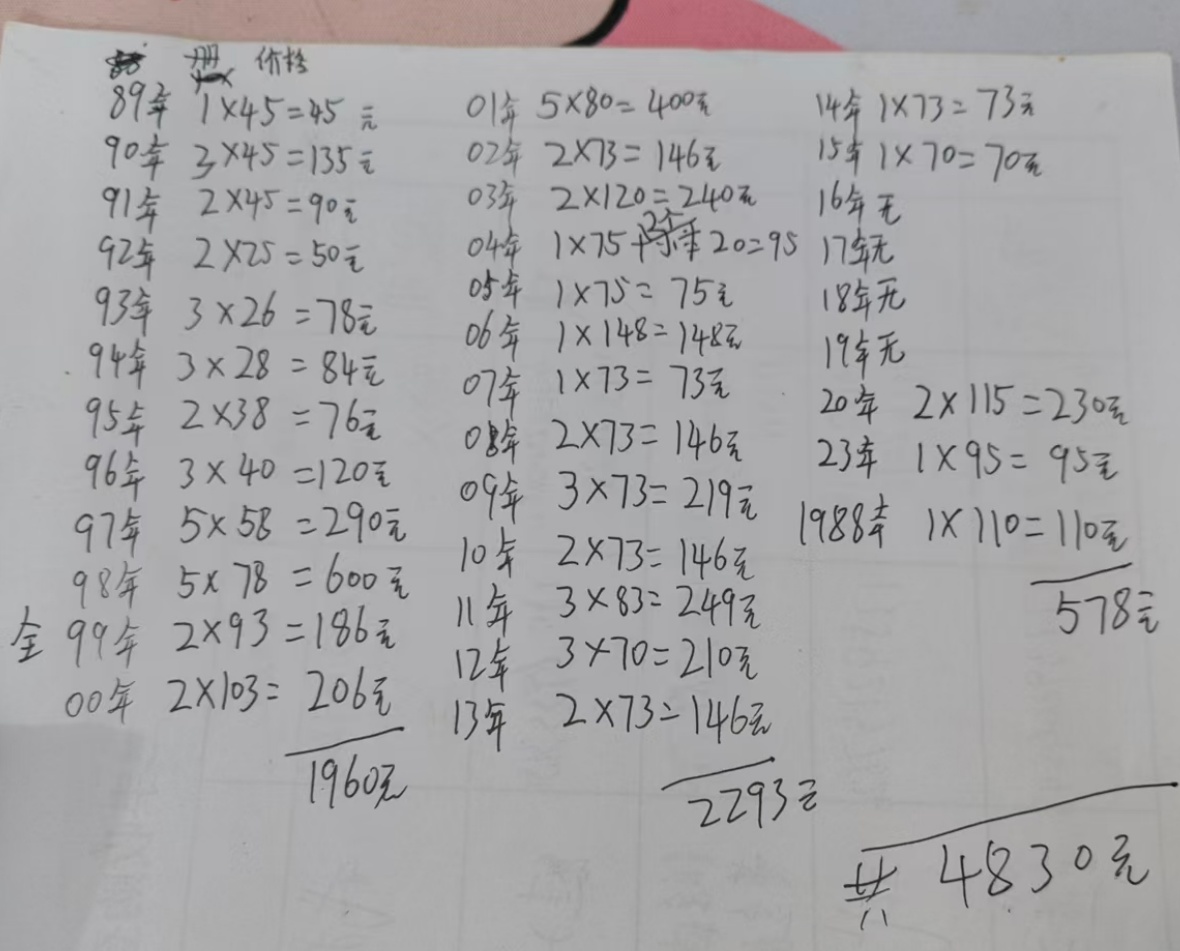 册 价格
89年 1×45=45元
90年 3×45=135元
91年 2×45=90元
92年 2×25=50元
93年 3×26=78元
94年 3×28=84元
95年 2×38=76元
96年 3×40=120元
97年 5×58=290元
98年 5×78=600元
全 99年 2×93=186元
00年 2×103=206元
1960元
01年 5×80=400元
02年 2×73=146元
03年 2×120=240元
04年 1×75+ 20=95
05年 1×75=75元
06年 1×148=148元
07年 1×73=73元
08年 2×73=146元
09年 3×73=219元
10年 2×73=146元
11年 3×83=249元
12年 3×70=210元
13年 2×73=146元
2293元
14年 1×73=73元
15年 1×70=70元
16年无
17年无
18年无
19年无
20年 2×115=230元
23年 1×95=95元
1988年 1×110=110元
578元
共 4830元